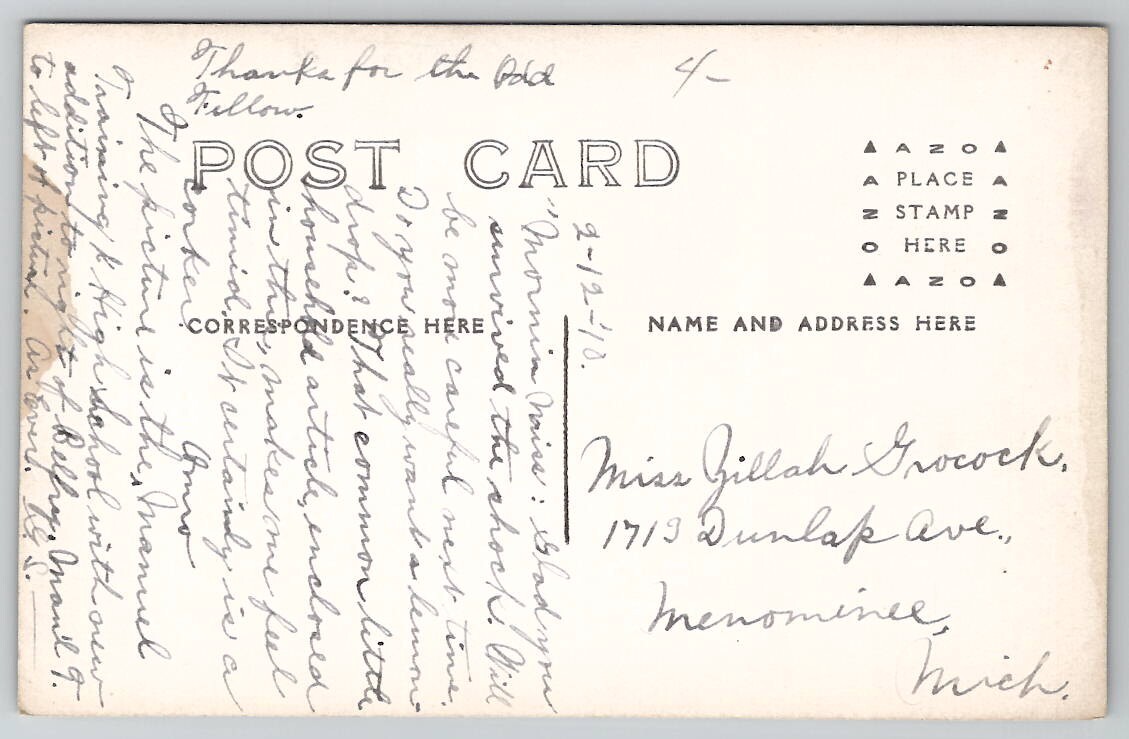 Thanks for the Odd
Fellow.
4/-
POST CARD
AZO
A PLACE A
N STAMP N
O HERE O
AZO
CORRESPONDENCE HERE
NAME AND ADDRESS HERE
2-12-'10.
"Mornin Miss: Glad you
survived the shock. Will
be more careful next time.
Do you really want a lemon
drop? That common little
household article, enclosed
in this, makes me feel
timid. It certainly is a
corker
The picture is the, Manuel
Training & High school with new
addition to right of Belfry. Man'l T.
to left of picture. As Ever. S.
Miss Zillah Grocock.
1713 Dunlap Ave.,
Menominee,
Mich.